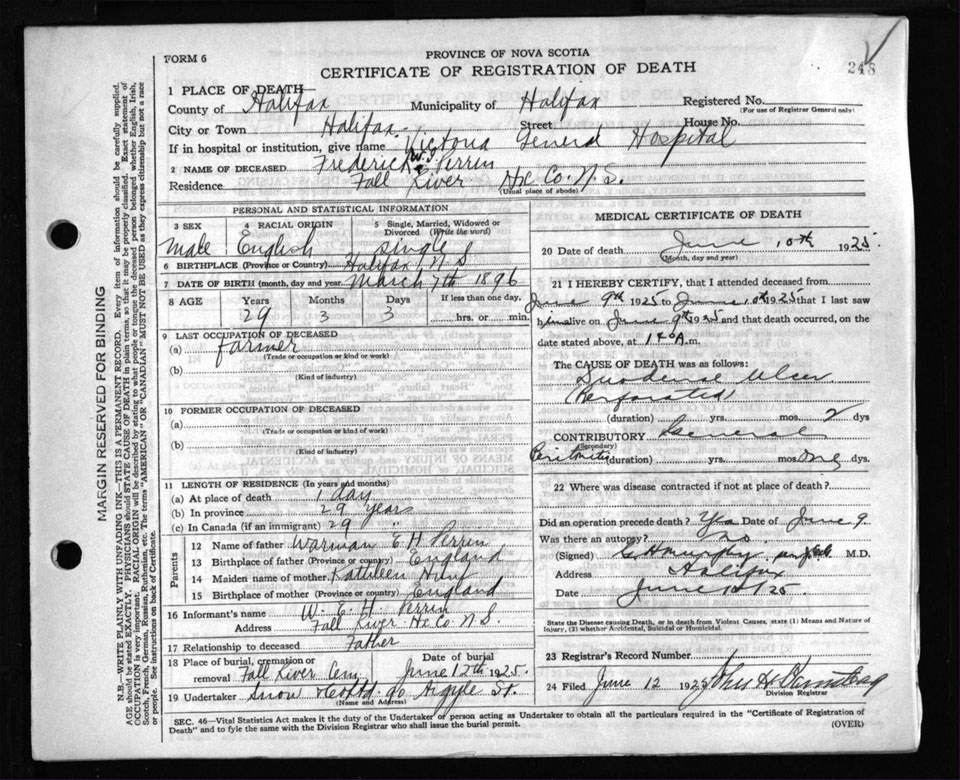 PROVINCE OF NOVA SCOTIA
FORM 6
CERTIFICATE OF REGISTRATION OF DEATH
248
1 PLACE OF DEATH
County of Halifax Municipality of Halifax Registered No.
(For use of Registrar General only)
City or Town Halifax Street House No.
If in hospital or institution, give name Victoria General Hospital
2 NAME OF DECEASED Frederick W. J. Perrin
Residence Fall River Hx. Co. N.S.
(Usual place of abode)
PERSONAL AND STATISTICAL INFORMATION
3 SEX 4 RACIAL ORIGIN 5 Single, Married, Widowed or Divorced (Write the word)
Male English Single
6 BIRTHPLACE (Province or Country) Halifax N S
7 DATE OF BIRTH (month, day and year) March 7th 1896
8 AGE Years Months Days If less than one day,
29 3 3 hrs. or min.
9 LAST OCCUPATION OF DECEASED
(a) farmer
(Trade or occupation or kind or work)
(b)
(Kind of industry)
10 FORMER OCCUPATION OF DECEASED
(a)
(Trade or occupation or kind of work)
(b)
(Kind of industry)
11 LENGTH OF RESIDENCE (In years and months)
(a) At place of death 1 day
(b) In province 29 years
(c) In Canada (if an immigrant) 29 "
Parents
12 Name of father Warman E H Perrin
13 Birthplace of father (Province or country) England
14 Maiden name of mother Kathleen
15 Birthplace of mother (Province or country) England
16 Informant's name W. E. H. Perrin
Address Fall River Hx Co. N.S.
17 Relationship to deceased Father
18 Place of burial, cremation or removal Fall River Cem Date of burial June 12th 1925.
19 Undertaker Snow & Co Ltd 90 Argyle St.
(Name and Address)
MEDICAL CERTIFICATE OF DEATH
20 Date of death June 10th 1925.
(Month, day and year)
21 I HEREBY CERTIFY, that I attended deceased from
June 9th 1925 to June 10th 1925 that I last saw
him alive on June 9th 1925 and that death occurred, on
date stated above, at 1 40 A.m.
The CAUSE OF DEATH was as follows:
Duodenal Ulcer
(Perforated)
(duration) yrs. mos. 2 dys
CONTRIBUTORY General
(Secondary)
Peritonitis (duration) yrs. mos. one dys.
22 Where was disease contracted if not at place of death?
Did an operation precede death? Yes Date of June 9
Was there an autopsy? no.
(Signed) G H Murphy M.D.
Address Halifax
Date June 25.
State the Disease causing Death, or in death from Violent Causes, state (1) Means and Nature of Injury, (2) whether Accidental, Suicidal or Homicidal.
23 Registrar's Record Number
24 Filed June 12 1925
Division Registrar
SEC. 46—Vital Statistics Act makes it the duty of the Undertaker or person acting as Undertaker to obtain all the particulars required in the "Certificate of Registration of
Death" and to fyle the same with the Division Registrar who shall issue the burial permit.
(OVER)
MARGIN RESERVED FOR BINDING
N.B.—WRITE PLAINLY WITH UNFADING INK—THIS IS A PERMANENT RECORD. Every item of information should be carefully supplied.
AGE should be stated EXACTLY. PHYSICIANS should STATE CAUSE OF DEATH in plain terms, so that it may be properly classified. Exact statement of
OCCUPATION is very important. RACIAL ORIGIN will be described by stating to what people or tongue the deceased person belonged whether English, Irish,
Scotch, French, German, Russian, Ruthenian, etc. The terms "AMERICAN" or "CANADIAN" MUST NOT BE USED as they express citizenship but not a race
or people. See instructions on back of Certificate.